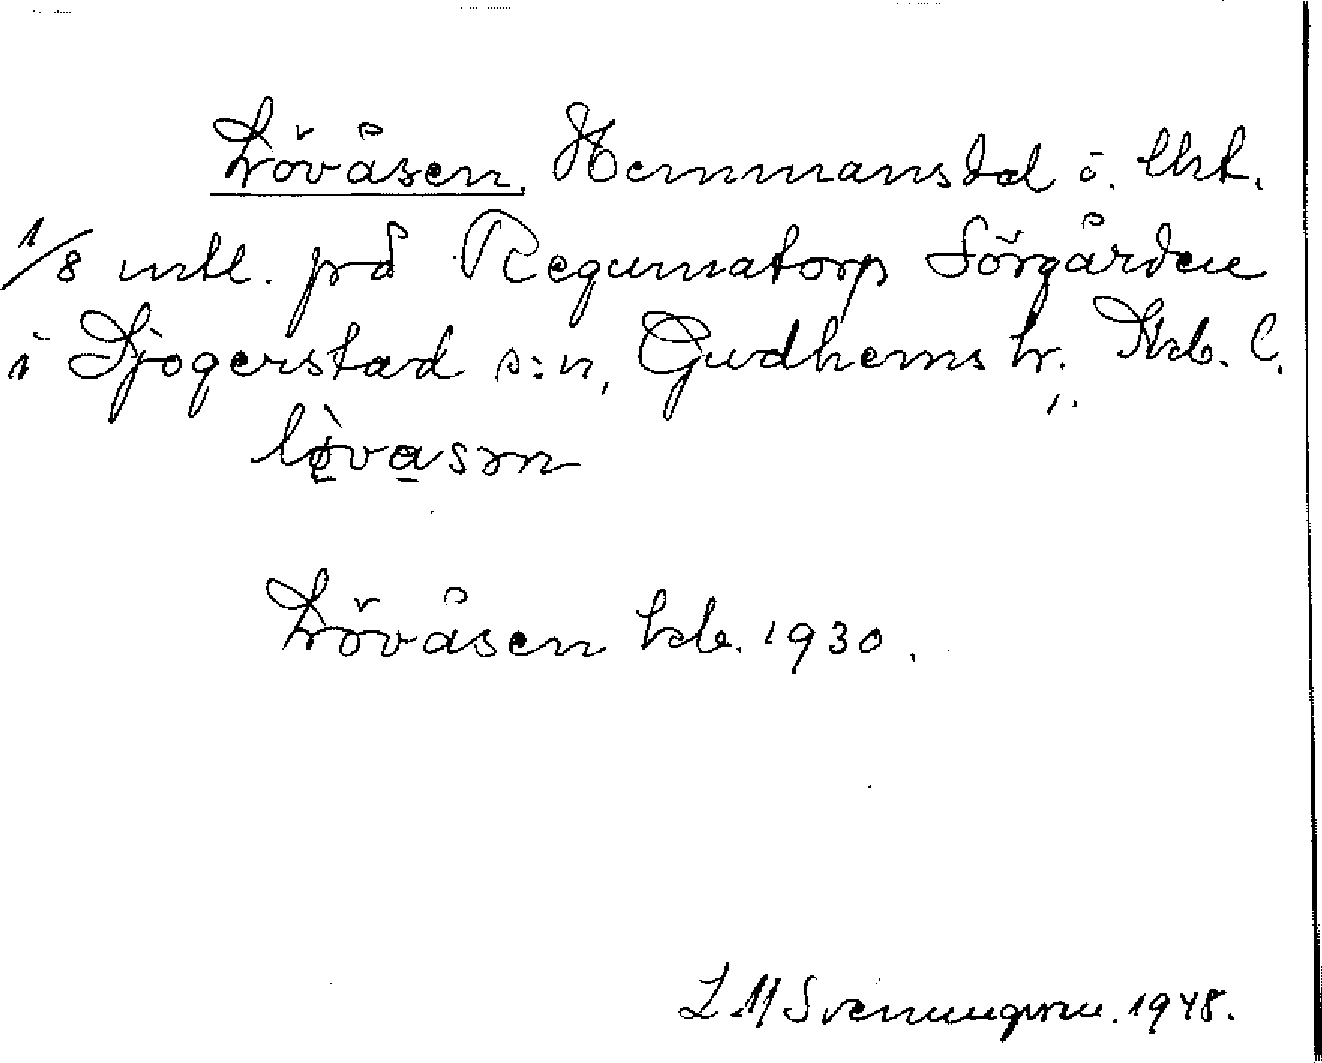 Lövåsen, Hemmansdel ö.
1/8 mtl. på Regumatorp Sörgården
i Sjogerstad s:n, Gudhems hr. Skb. l.
lòvasn
Lövåsen kb. 1930.
L M Svenungsson. 1948.